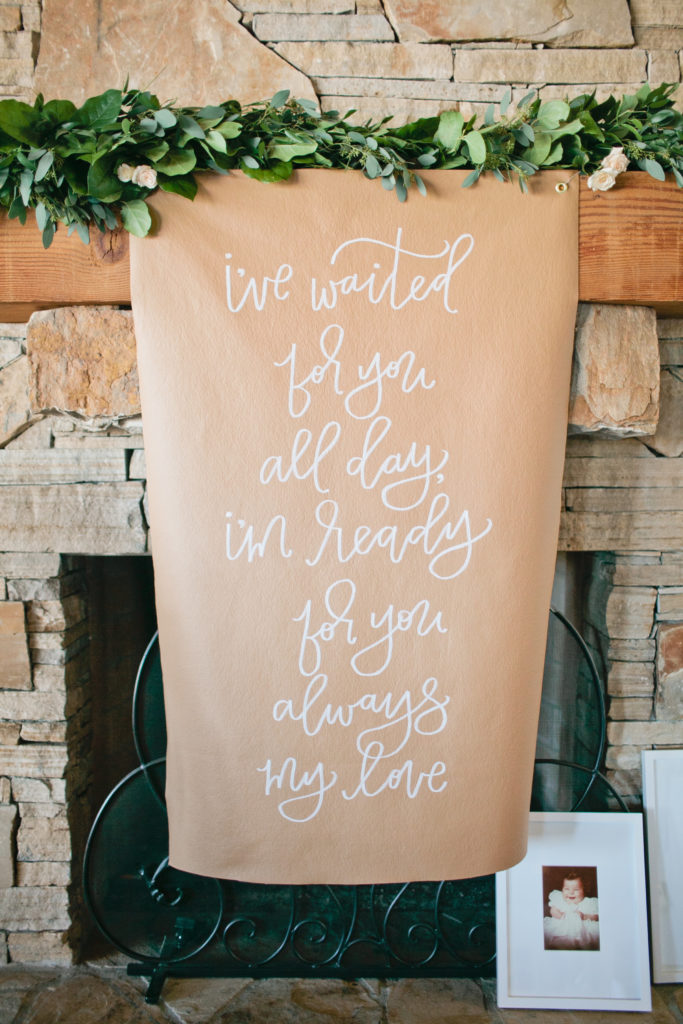 i've waited
for you
all day,
i'm ready
for you
always
my love